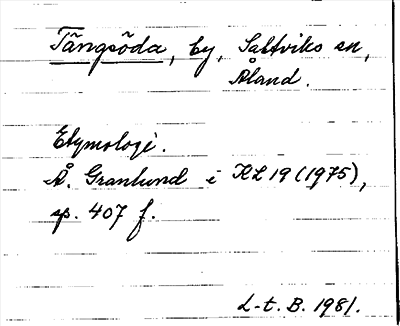 Tängsöda, by, Saltviks sn,
Åland.
Etymologi.
Å. Granlund i KL 19 (1975),
sp. 407 f.
L-t. B. 1981.